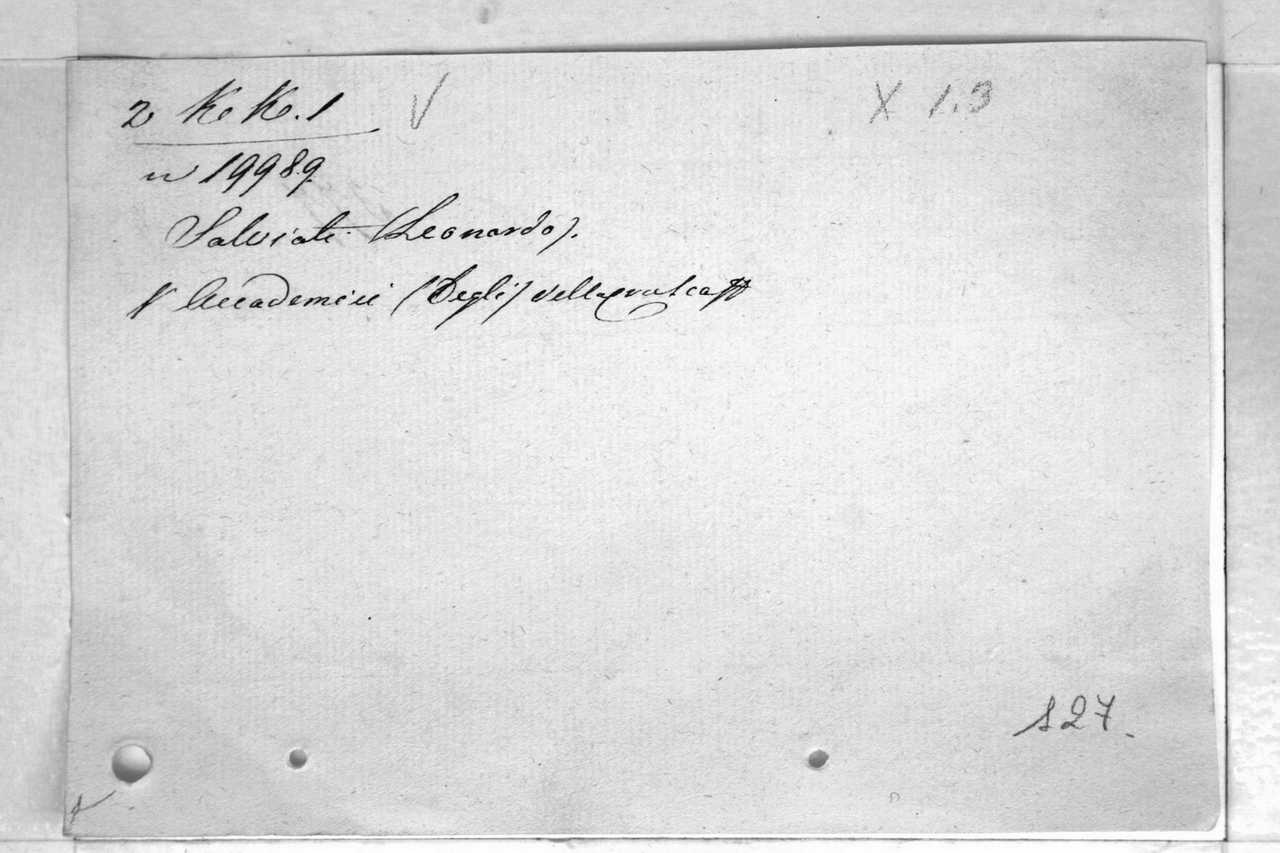 2 K.K.1 V X 1.3
n 19989.
Salviati (Leonardo).
V Accademici (Degli) della crusca
127.